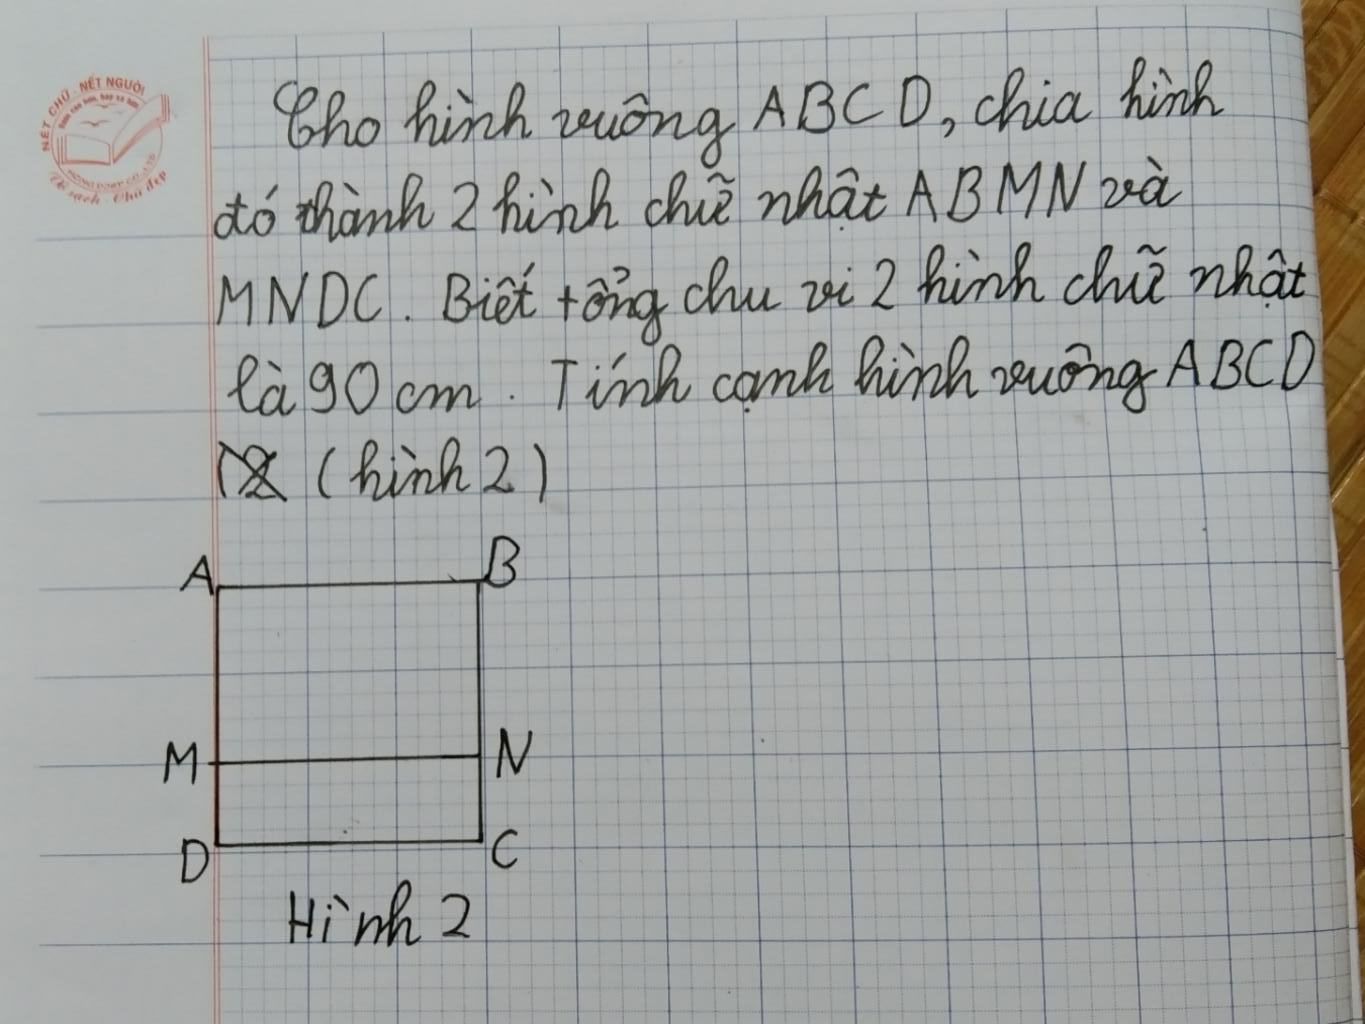 NÉT CHỮ - NẾT NGƯỜI
Cho hình vuông ABCD, chia hình
đó thành 2 hình chữ nhật ABMN và
MNDC. Biết tổng chu vi 2 hình chữ nhật
là 90 cm. Tính cạnh hình vuông ABCD
(hình 2)
A B
M N
D C
Hình 2